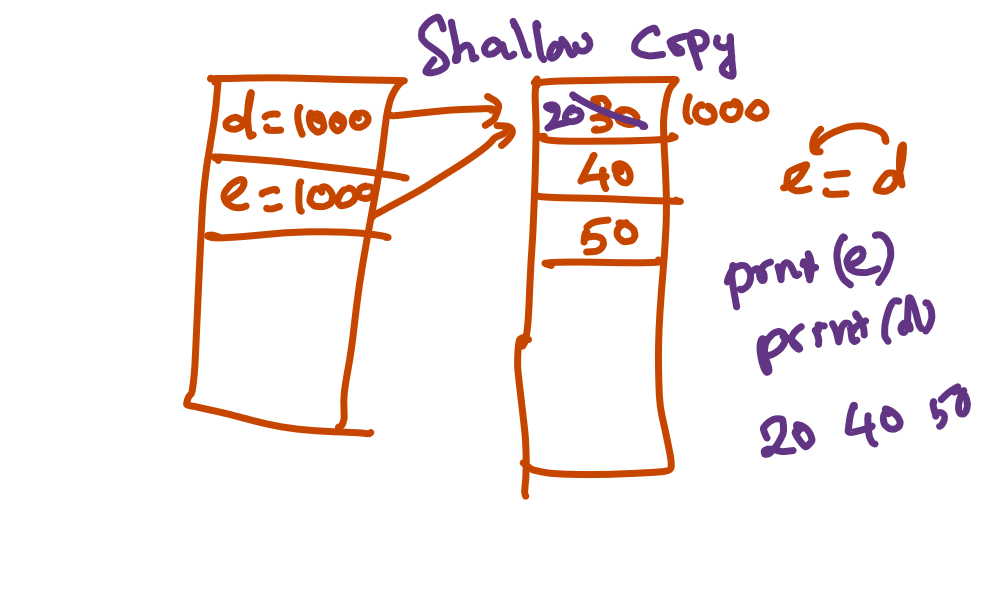 Shallow Copy
d=1000
e=1000
20 30 1000
40
50
e=d
print(e)
print(d)
20 40 50